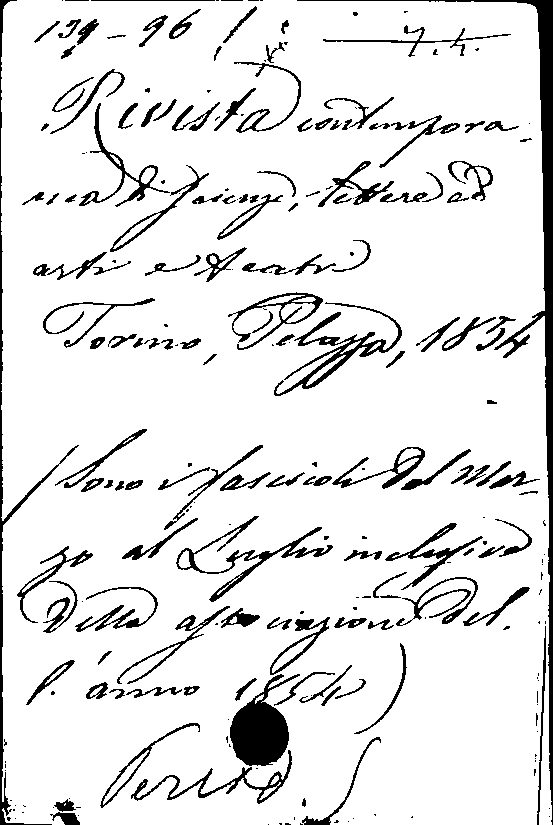 139-96 7.4.
Rivista contempora-
nea di scienze, lettere ed
arti e teatri
Torino, Pelazza, 1854
(Sono i fascicoli del Mar-
zo al Luglio inclusive
della associazione del-
l'anno 1854)